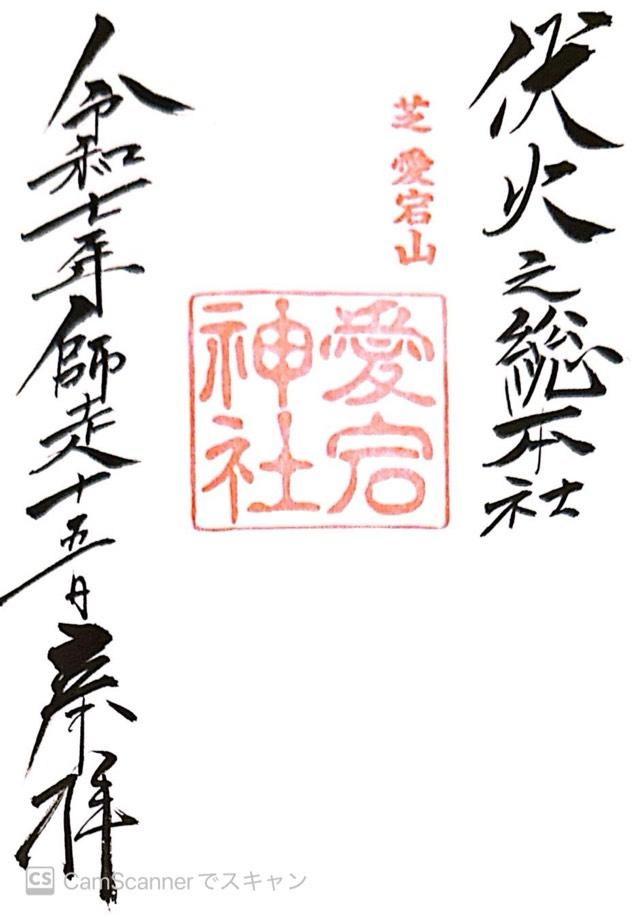 伏火之総本社
芝 愛宕山
愛宕
神社
令和七年師走十五日
奉拝
CS CamScannerでスキャン